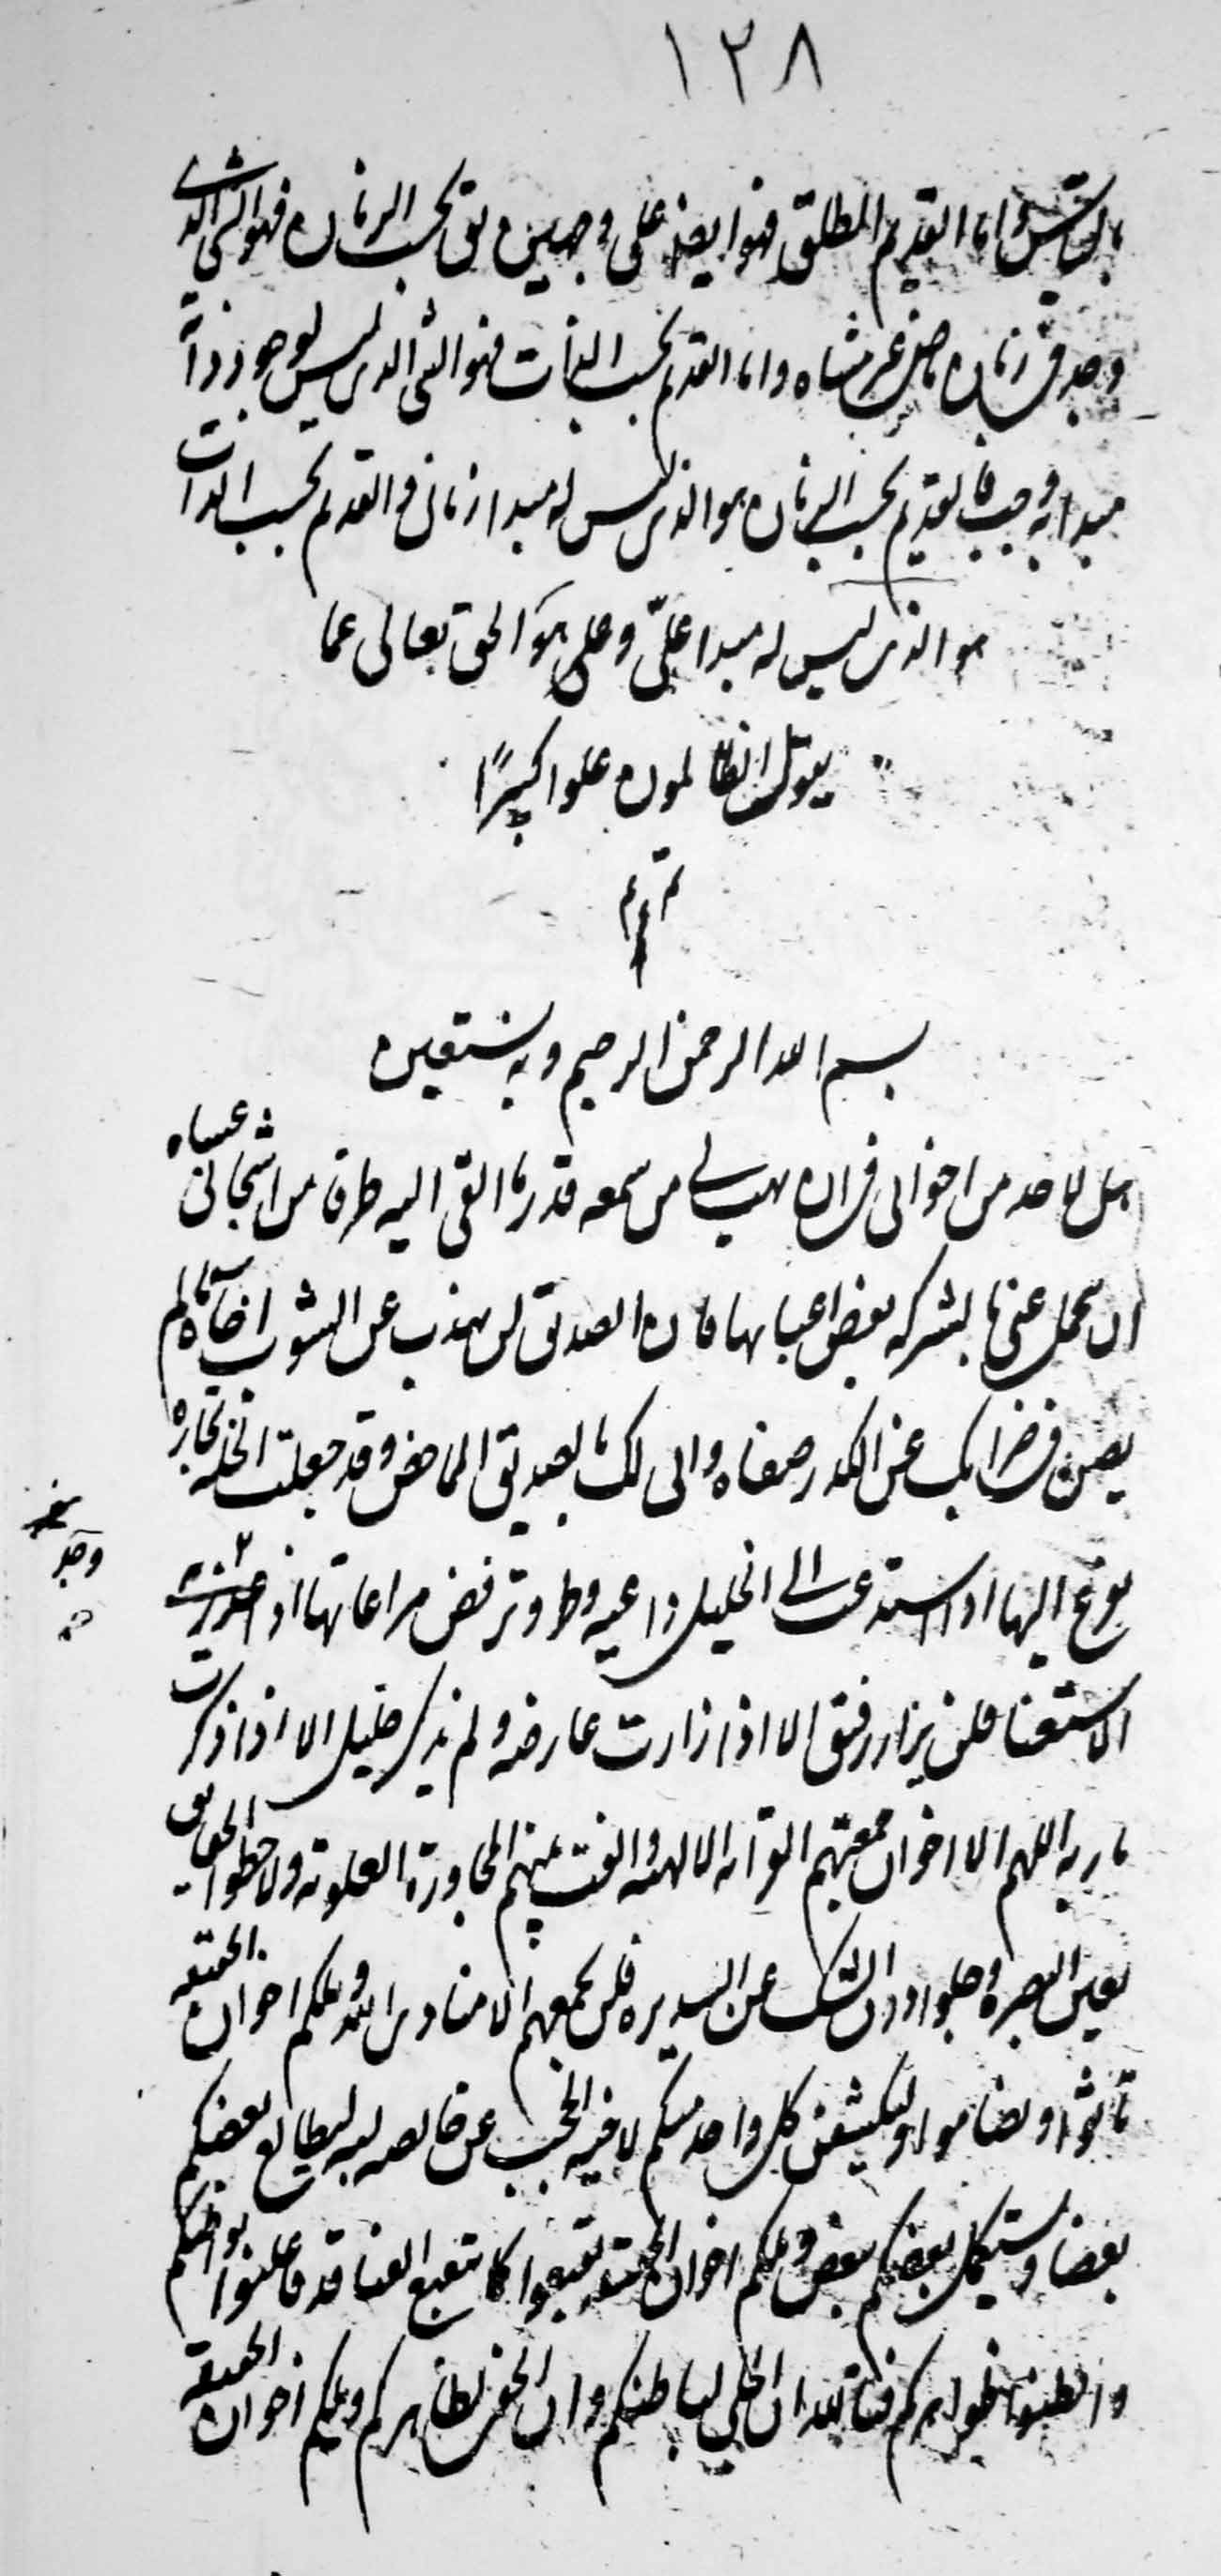 ١٢٨
بالقياس واما القديم المطلق فهو ايضا على وجهين يق بحسب الزمان فهو الشئ الذي
وجد فى زمان ماض غير متناه واما القديم بحسب الذات فهو الشئ الذى ليس لوجود ذاته
مبدا به وجب فالقديم بحسب الزمان هو الذى ليس له مبدا زمانى والقديم بحسب الذات
هو الذى ليس له مبدا علّى وعلى هو الحق تعالى عما
يقول الظالمون علوا كبيرًا
تم
بسم الله الرحمن الرحيم وبه نستعين
هل لاحد من اخوانى فى ان يهب لى من سمعه قدر ما القى اليه طرفا من اشجانى عساه
ان يتحمل عنى بالشركه بعض اعبائها فان الصديق لن يهذب عن الشوب اخاه ما لم
يصن فى ضرائك عن الكدر صفاه وانى لك بالصديق الماحض وقد جعلت الخلة تجارة
يفزع اليها اذا استدعت الى الخليل داعيه وطر وترفض مراعاتها اذا عرض
وجد
الاستغنا فلن يزار رفيق الا اذا زارت عارضه ولم يذكر خليل الا اذا ذكرت
ماربه اللهم الا اخوان جمعتهم القرابه الالهيه والفت بينهم المجاورة العلويه ولاحظوا الحقايق
بعين البصيره وجلوا درن الشك عن السريره فلن يجمعهم الا منادى الله ويلكم اخوان الحقيقه
تابثوا وتضاموا وليكشفن كل واحد منكم لاخيه الحجب عن خالصه لبه ليطالع بعضكم
بعضا وليستكمل بعضكم ببعض ويلكم اخوان الحقيقه تقبعوا كما يتقبع القنافد فاعلنوا بواطنكم
وابطنوا ظواهركم فتالله ان الجلى لباطنكم وان الخفى لظاهركم ويلكم اخوان الحقيقه